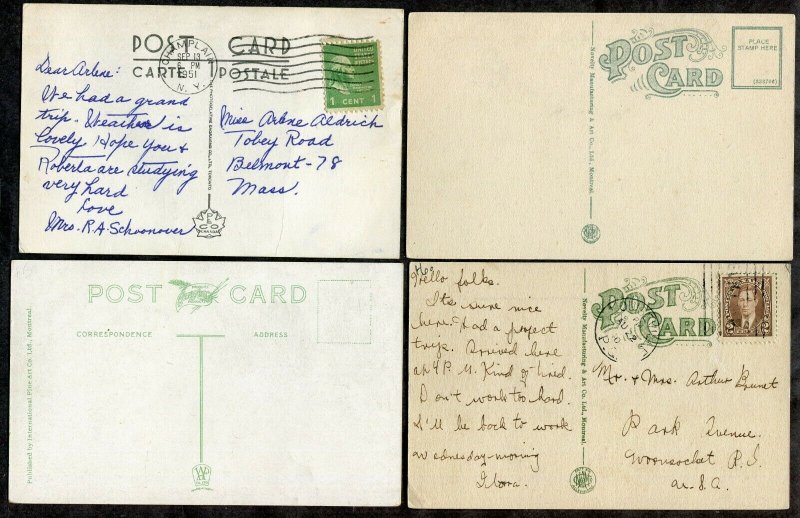 POST CARD
CARTE POSTALE
CHAMPLAIN
SEP 13
6 PM
1951
N. Y.
1 CENT 1
Dear Arlene:
We had a grand
trip. Weather is
lovely Hope you &
Roberta are studying
very hard
Love
Mrs. R. A. Schoonover
Miss Arlene Aldrich
Tobey Road
Belmont-78
Mass.
POST
CARD
PLACE
STAMP HERE
Novelty Manufacturing & Art Co., Ltd., Montreal.
POST CARD
CORRESPONDENCE
ADDRESS
Published by International Fine Art Co. Ltd., Montreal.
POST
CARD
Novelty Manufacturing & Art Co., Ltd., Montreal.
Hello folks.
Its sure nice
here. Had a
trip. Arrived here
at 4 P. M. Kind of tired.
Don't work too hard.
I'll be back to work
wednesday-morning
Mr. & Mrs. Arthur Brunet
Park Avenue.
Woonsocket R. I.
U. S. A.